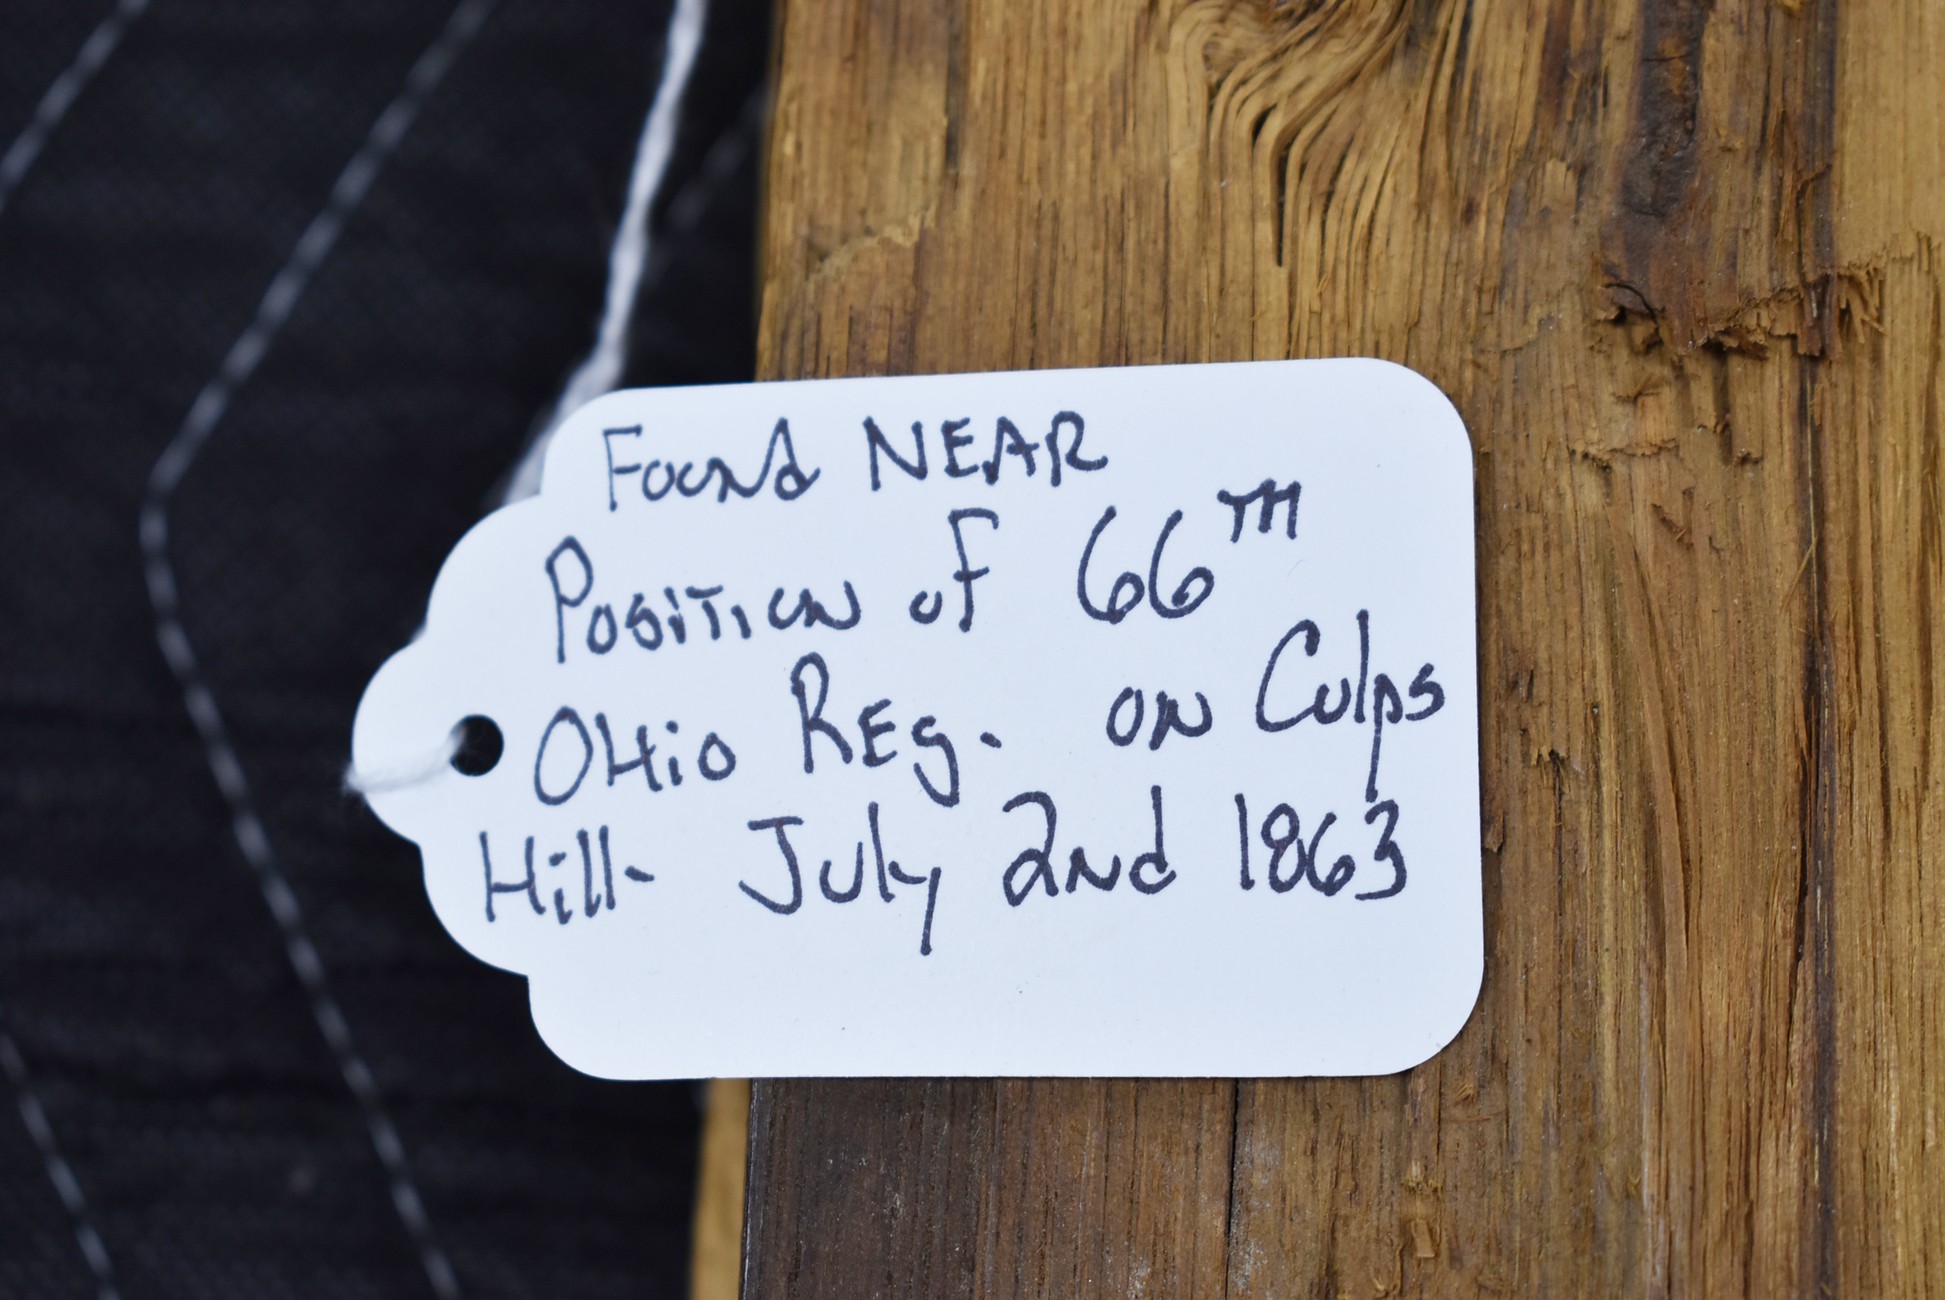 Found NEAR
Position of 66TH
OHio REg. on Culps
Hill- July 2nd 1863